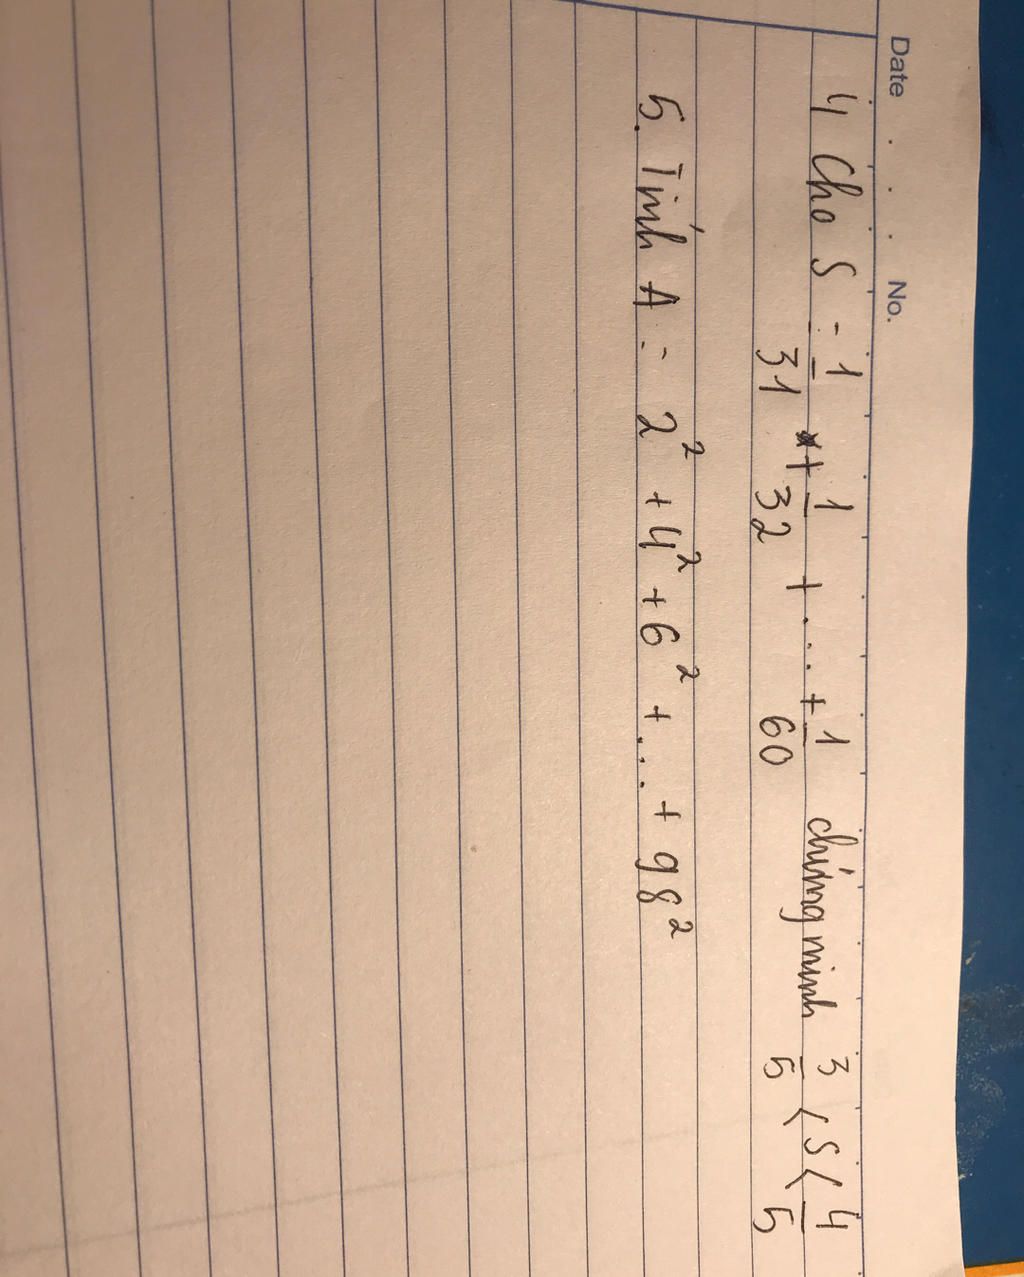 Date . . . No.
4 Cho S = 1/31 + 1/32 + ... + 1/60 chứng minh 3/5 < S < 4/5
5. Tính A = 2² + 4² + 6² + ... + 98²